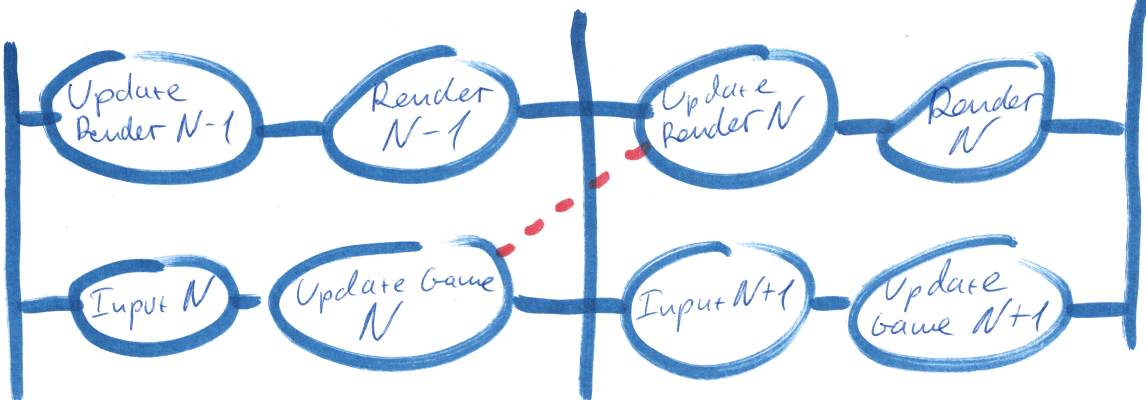 Update
Render N-1
Render
N-1
Update
Render N
Render
N
Input N
Update Game
N
Input N+1
Update
Game N+1